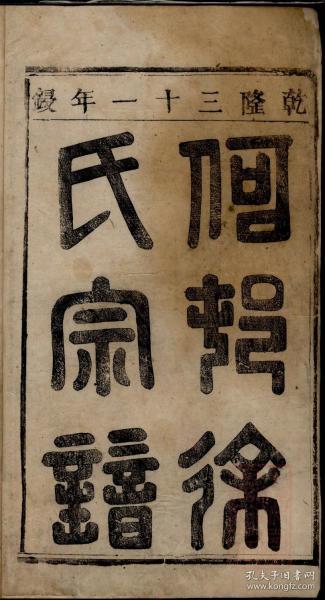 乾隆三十一年鋟
何邨徐
氏宗譜
孔夫子旧书网
www.kongfz.com